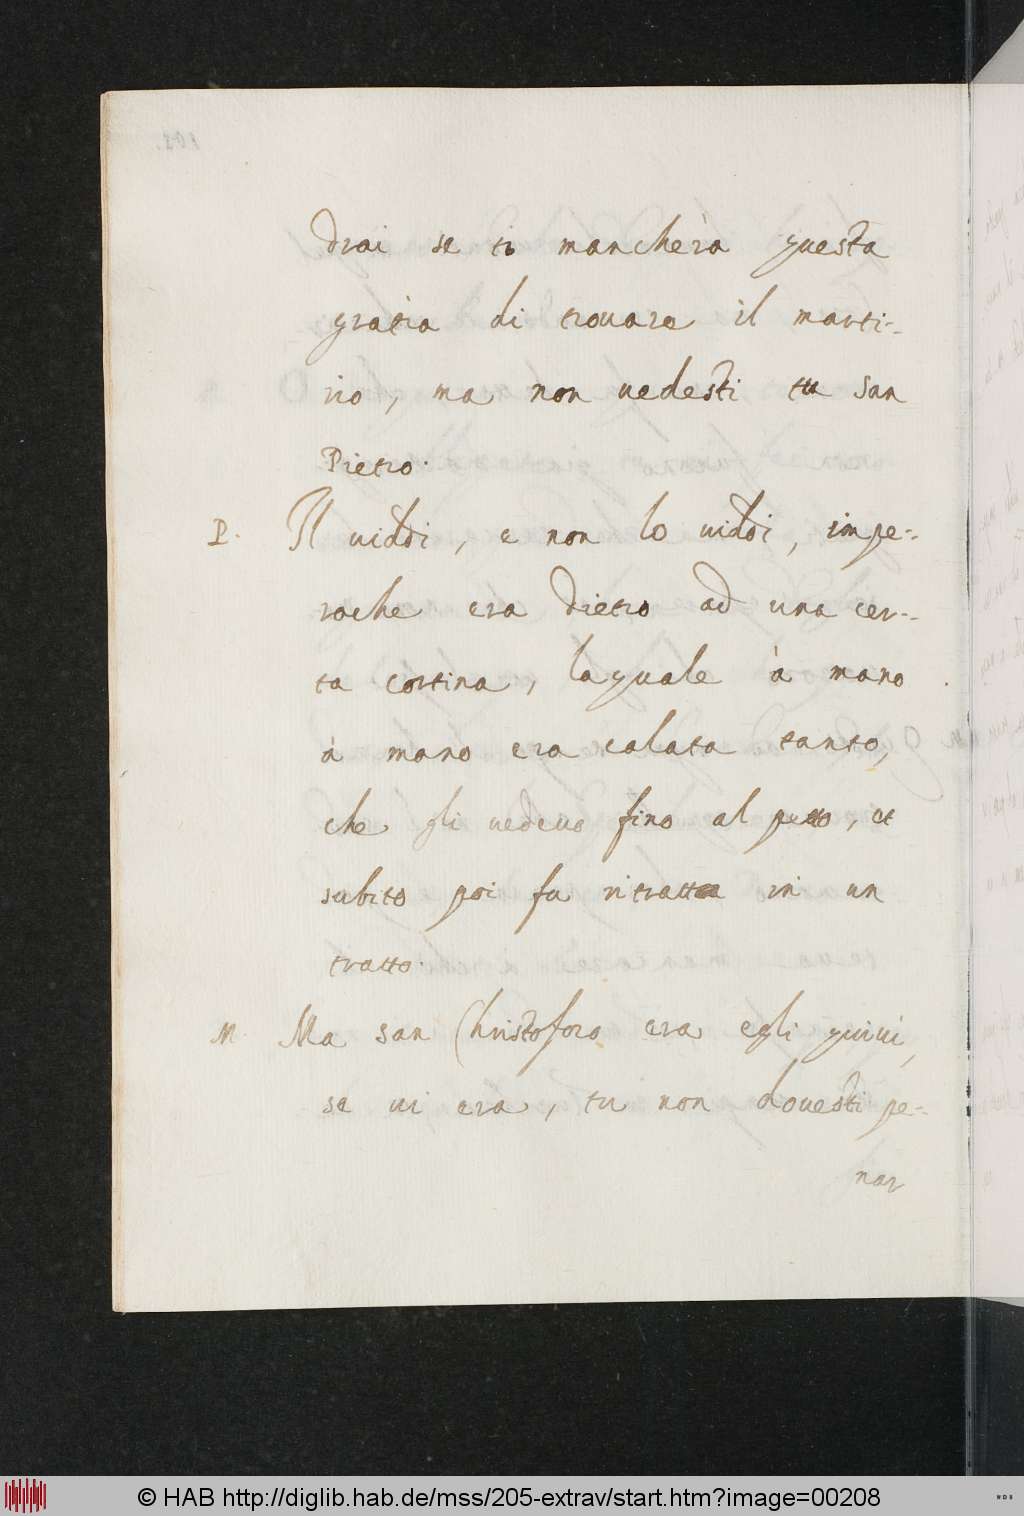 drai se ti mancherà questa
gratia di trouare il marti-
rio, ma non uedesti tu San
Pietro.
P. Il uiddi, e non lo uiddi, impe-
roche era dietro ad una cer-
ta cortina, laquale à mano
à mano era calata tanto,
che gli vedeuo fino al petto, et
subito poi fu ritratta in un
tratto.
M. Ma san Christoforo era egli quiui,
se ui era, tu non douesti pe-
nar
© HAB http://diglib.hab.de/mss/205-extrav/start.htm?image=00208